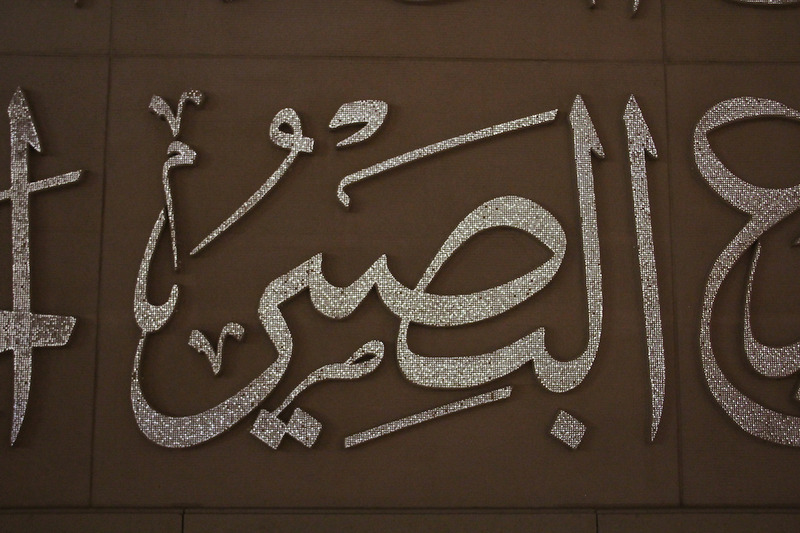 البصيرُ